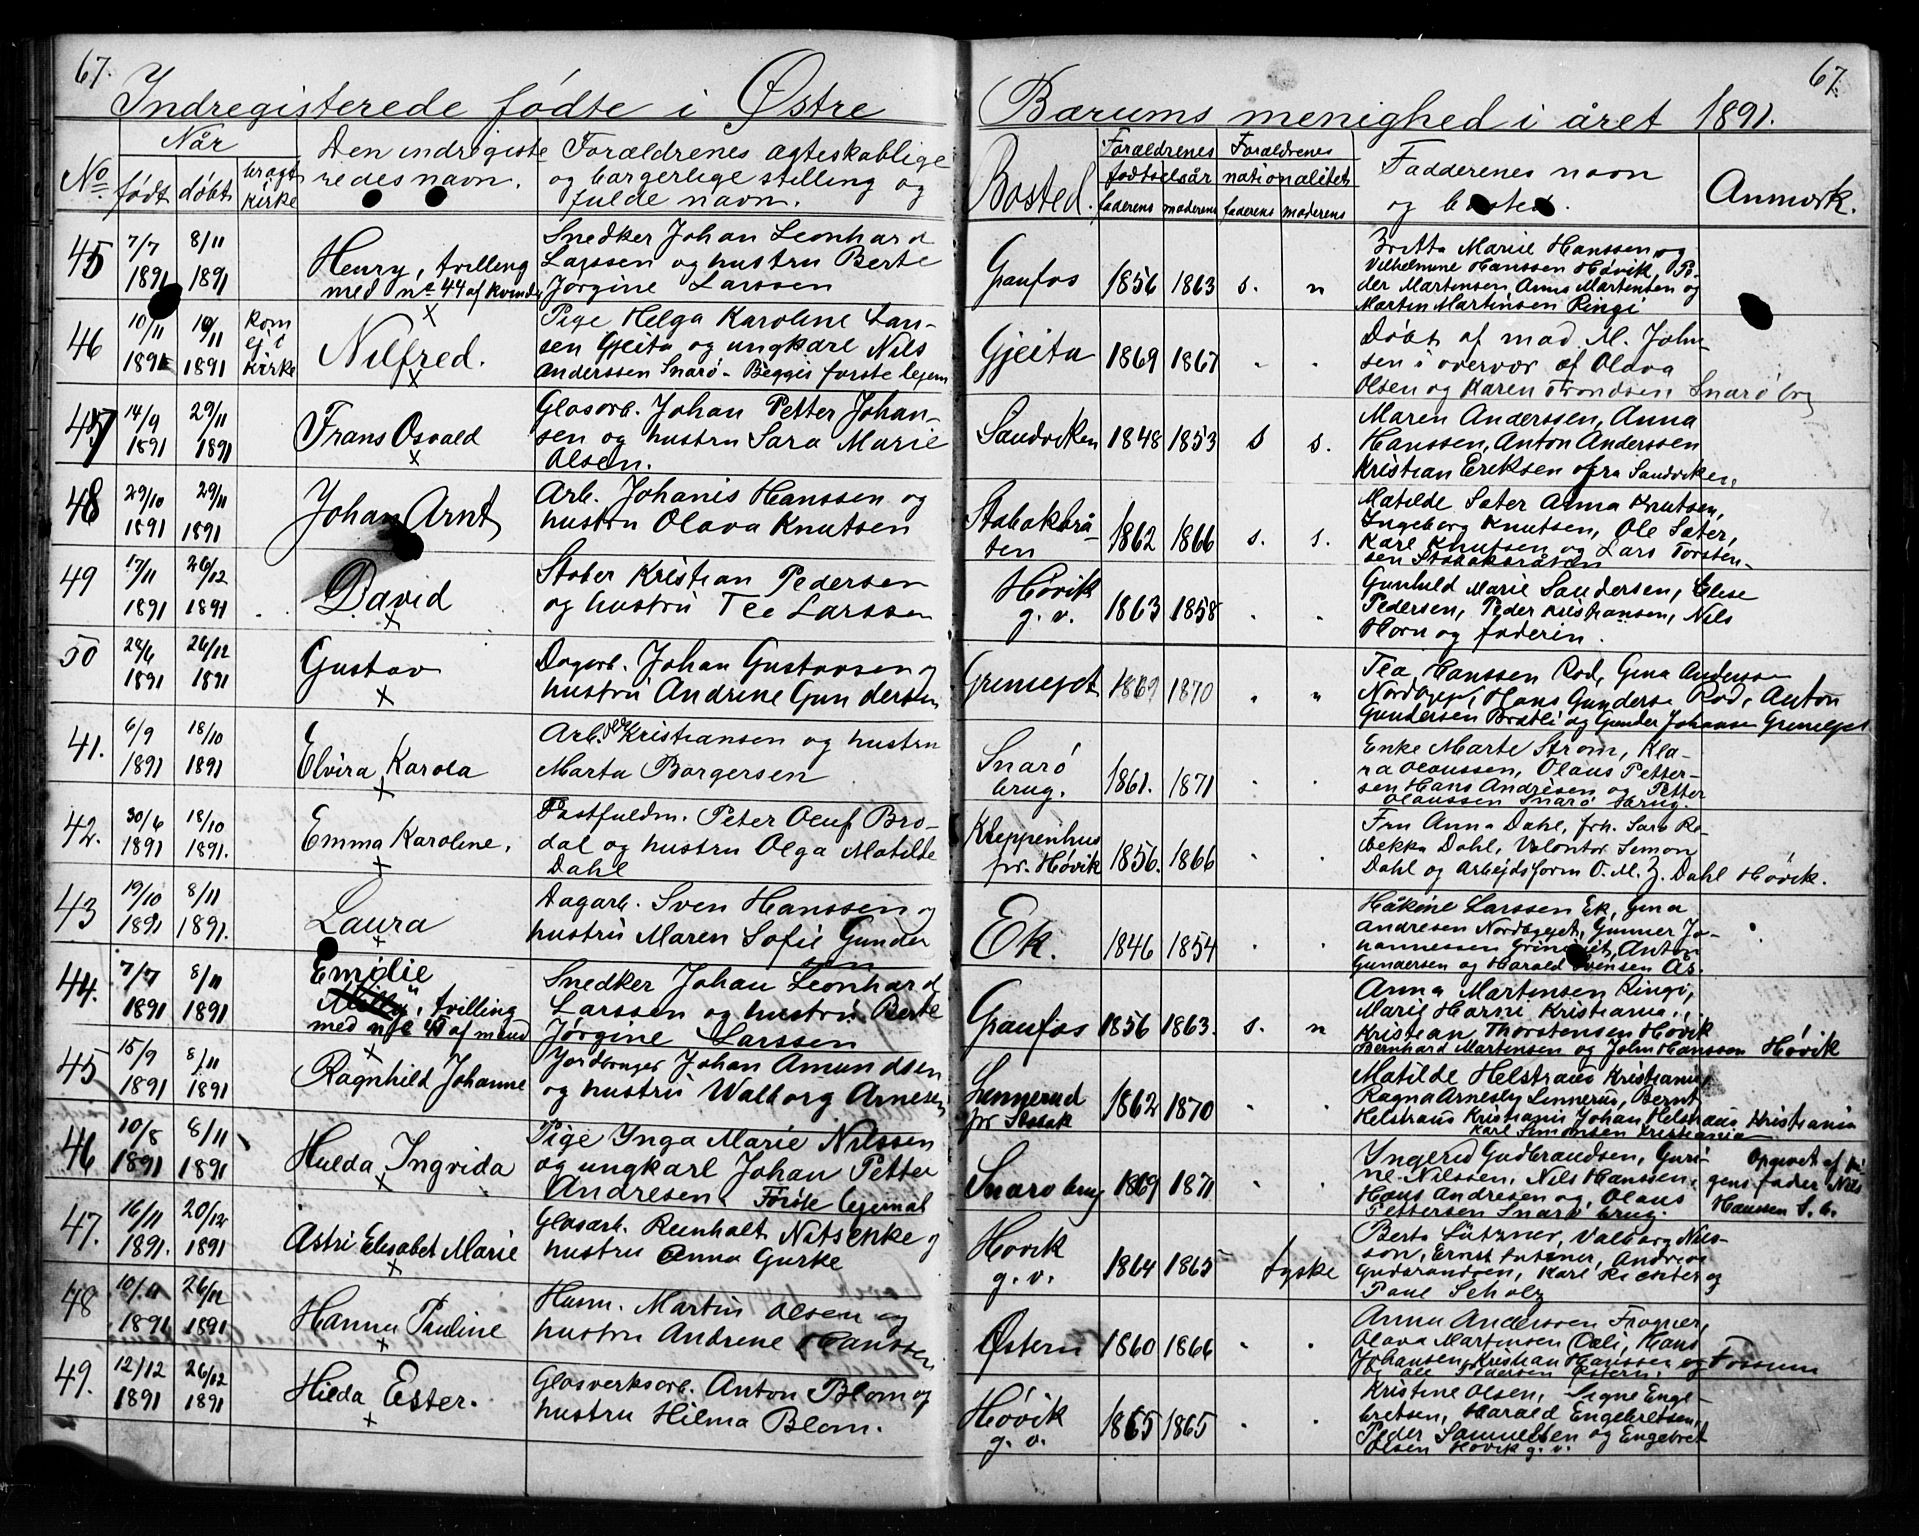 67.
67.
Indregisterede fødte i Østre Bærums menighed i året 1891.
No. Når født døbt bragt kirke
Den indregiste
redes navn.
Forældrenes ægteskablige
og borgerlige stilling og
fulde navn.
Bosted.
Forældrenes fødselsår faderens moderens
Forældrenes nationalitet faderens moderens
Faddernes navn
og bosted.
Anmærk.
45 7/7 1891 8/11 1891
Henry, tvilling
med no 44 af kvinder
Snedker Johan Leonhard
Larssen og hustru Berte
Jørgine Larssen
Granfos 1856 1863 s. n
Britta Marie Hanssen og
Vilhelmine Hanssen Høvik, Pe-
der Martinsen Anna Martinsen og
Martin Martinsen Ringi
46 10/11 1891 10/11 1891 kom ej i kirke
Nilfred.
Pige Helga Karoline Han-
sen Gjeita og ungkarl Nils
Anderssen Snarø - Begges første lejerm
Gjeita 1869 1867 " "
Døbt af mad. M. John-
sen i overvær af Olava
Olsen og Karen Trondsen Snarø brg
47 14/9 1891 29/11 1891
Frans Osvald
Glasarb. Johan Petter Johan-
sen og hustru Sara Marie
Olsen.
Sandviken 1848 1853 s s.
Maren Anderssen, Anna
Hanssen, Anton Anderssen
Kristian Eriksen fra Sandviken.
48 29/10 1891 29/11 1891
Johan Arnt
Arb. Johanis Hanssen og
hustru Olava Knutsen
Stabakbrå-
ten 1862 1866 s. s.
Matilde Sater Anna Knutsen,
Ingeborg Knutsen, Ole Sater,
Karl Knutsen og Lars Torsten-
sen Stabakbråten
49 17/11 1891 26/12 1891
David
Støber Kristian Pedersen
og hustru Tee Larssen
Høvik
g. v. 1863 1858 " "
Gunhild Marie Sandersen, Elise
Pedersen, Peder Kristiansen, Nils
Horn og faderen.
50 24/6 1891 26/12 1891
Gustav
Dagarb. Johan Gustavsen og
hustru Andrine Gundersen
Griniejet 1869 1870 " "
Tea Hanssen Rød, Gina Anderssen
Nordbyejet, Hans Gunderse Rød, Anton
Gundersen Bratli og Gunder Johansen Griniejet
41. 6/9 1891 18/10 1891
Elvira Karola
Arb. Kristiansen og hustru
Marta Borgersen
Snarø
brug. 1861. 1871 " "
Enke Marte Strøm, Kla-
ra Olaussen, Olaus Petter-
sen Hans Andresen og Petter
Olaussen Snarø brug.
42. 30/6 1891 18/10 1891.
Emma Karoline.
Postfuldm. Peter Oluf Bro-
dal og hustru Olga Matilde
Dahl
Kleppenhus
pr. Høvik 1856. 1866 " "
Fru Anna Dahl, frk. Sara Re-
bekka Dahl, Volontør Simon
Dahl og Arbejdsform O. M. Z. Dahl Høvik.
43 19/10 1891 8/11 1891.
Laura
Dagarb. Sven Hanssen og
hustru Maren Sofie Gunder
sen
Ek. 1846 1854 " "
Håkine Larssen Ek, Gina
Andresen Nordbyejet, Gunner Jo-
hannessen Griniejet, Anton
Gundersen og Harald Svensen Ås.
44. 7/7 1891 8/11 1891
Emilie
tvilling
med no 45 af mænd
Snedker Johan Leonhard
Larssen og hustru Berte
Jørgine Larssen
Granfos 1856 1863. s. n
Anna Martinsen Ringi,
Marie Harne Kristiania,
Kristian Thorstensen Høvik
Bernhard Martinsen og John Hanssen Høvik
45 15/9 1891 8/11 1891
Ragnhild Johanne
Jordbruger Johan Amundsen
og hustru Walborg Arnesen
Linnerud
pr Stabak 1862 1870 " "
Matilde Helstraus Kristiania,
Ragna Arnesby Linnerud, Bernt
Helstraus Kristiania Johan Helstraus Kristiania
Karl Simonsen Kristiania
46 10/8 1891 8/11 1891
Hulda Ingrida
Pige Inga Marie Nilssen
og ungkarl Johan Petter
Andresen. Første lejermål
Snarø brug 1869 1871 " "
Ingerid Gudbrandsen, Guri-
ne Nilssen, Nils Hanssen,
Hans Andresen og Olaus
Pettersen Snarø brug.
Opgivet af pi-
gens fader Nils
Hanssen S. b.
47. 16/11 1891. 20/12 1891
Astri Elisabet Marie
Glasarb. Reinholt Nitschke og
hustru Anna Gurke
Høvik
g. v. 1864 1865 tyske
Berta Lützner, Valborg Nils-
son, Ernst Lutzner, Andreas
Gudbrandsen, Karl Richter og
Paul Scholz
48 10/11 1891 26/12 1891
Hanna Pauline
Husm. Martin Olsen og
hustru Andrine Hanssen
Østern 1860 1866 " "
Anna Anderssen Frogner,
Olava Martinsen Oeli, Hans
Johansen, Kristian Hanssen og Fossum
Ole Pedersen Østern.
49. 12/12 1891 26/12 1891
Hilda Ester.
Glasverksarb. Anton Blom og
hustru Hilma Blom.
Høvik
g. v. 1865 1865 " "
Kristine Olsen, Signe Enge-
bretsen, Harald Engebretsen,
Peder Samuelsen og Engebret
Olsen Høvik g. v.